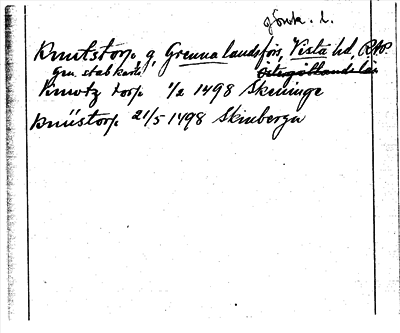 Jönk. L.
Knutstorp g, Grenna landsförs, Vista hd, RAP.
Gen. stab karta Östergötlands län
Knwtz torp 1/2 1498 Skeninge
Knústorp 21/5 1498 Skinbergh